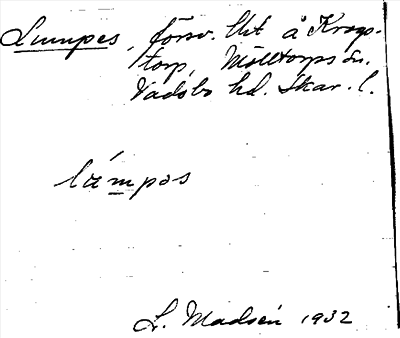 Lumpes, försv. lht å Krogs-
torp, Mölltorps sn.
Vadsbo hd. Skar. l.
lúmpos
L. Madsén 1932